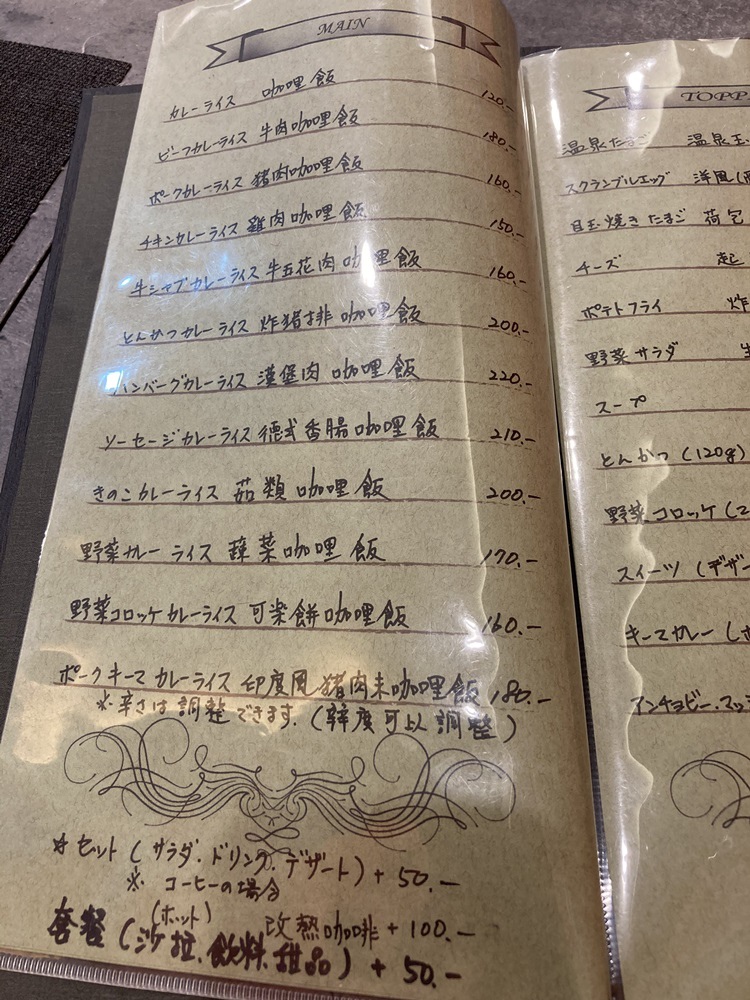 MAIN
カレーライス 咖哩飯 120.-
ビーフカレーライス 牛肉咖哩飯 180.-
ポークカレーライス 猪肉咖哩飯 160.-
チキンカレーライス 雞肉咖哩飯 150.-
牛シャブカレーライス 牛五花肉咖哩飯 160.-
とんかつカレーライス 炸猪排咖哩飯 200.-
ハンバーグカレーライス 漢堡肉咖哩飯 220.-
ソーセージカレーライス 德式香腸咖哩飯 210.-
きのこカレーライス 菇類咖哩飯 200.-
野菜カレーライス 蔬菜咖哩飯 170.-
野菜コロッケカレーライス 可楽餅咖哩飯 160.-
ポークキーマカレーライス 印度風猪肉末咖哩飯 180.-
※辛さは調整できます.(辣度可以調整)
セット(サラダ.ドリンク.デザート)+50.-
※コーヒーの場合
(ホット) 改熱咖啡+100.-
套餐(沙拉.飲料.甜品)+50.-
TOPP
温泉たまご 温泉玉
スクランブルエッグ 洋風(
目玉焼きたまご 荷包
チーズ 起
ポテトフライ 炸
野菜サラダ 生
スープ
とんかつ(120g)
野菜コロッケ(2
スイーツ(デザ
キーマカレー(ポ
アンチョビ.マッ